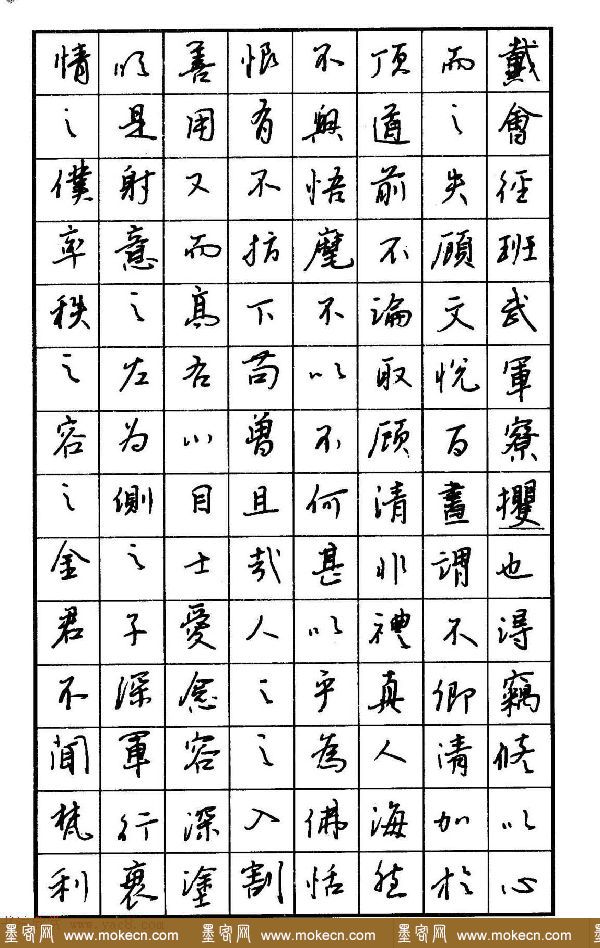 情以善恨不頂而戴
之是用有興道之會
僕射又不悟前失徑
率意而指麾不顧班
秩之高下不論文武
之左右苟以取悅軍
容為心曾不顧百寮
之側目且何清晝攫
金之士哉甚非謂也
君子愛人以禮不得
不深念之乎真卿竊
聞軍容之為人清修
梵行深入佛海加以
利衰塗割恬然於心
墨客网 www.mokecn.com 墨客网 www.mokecn.com 墨客网